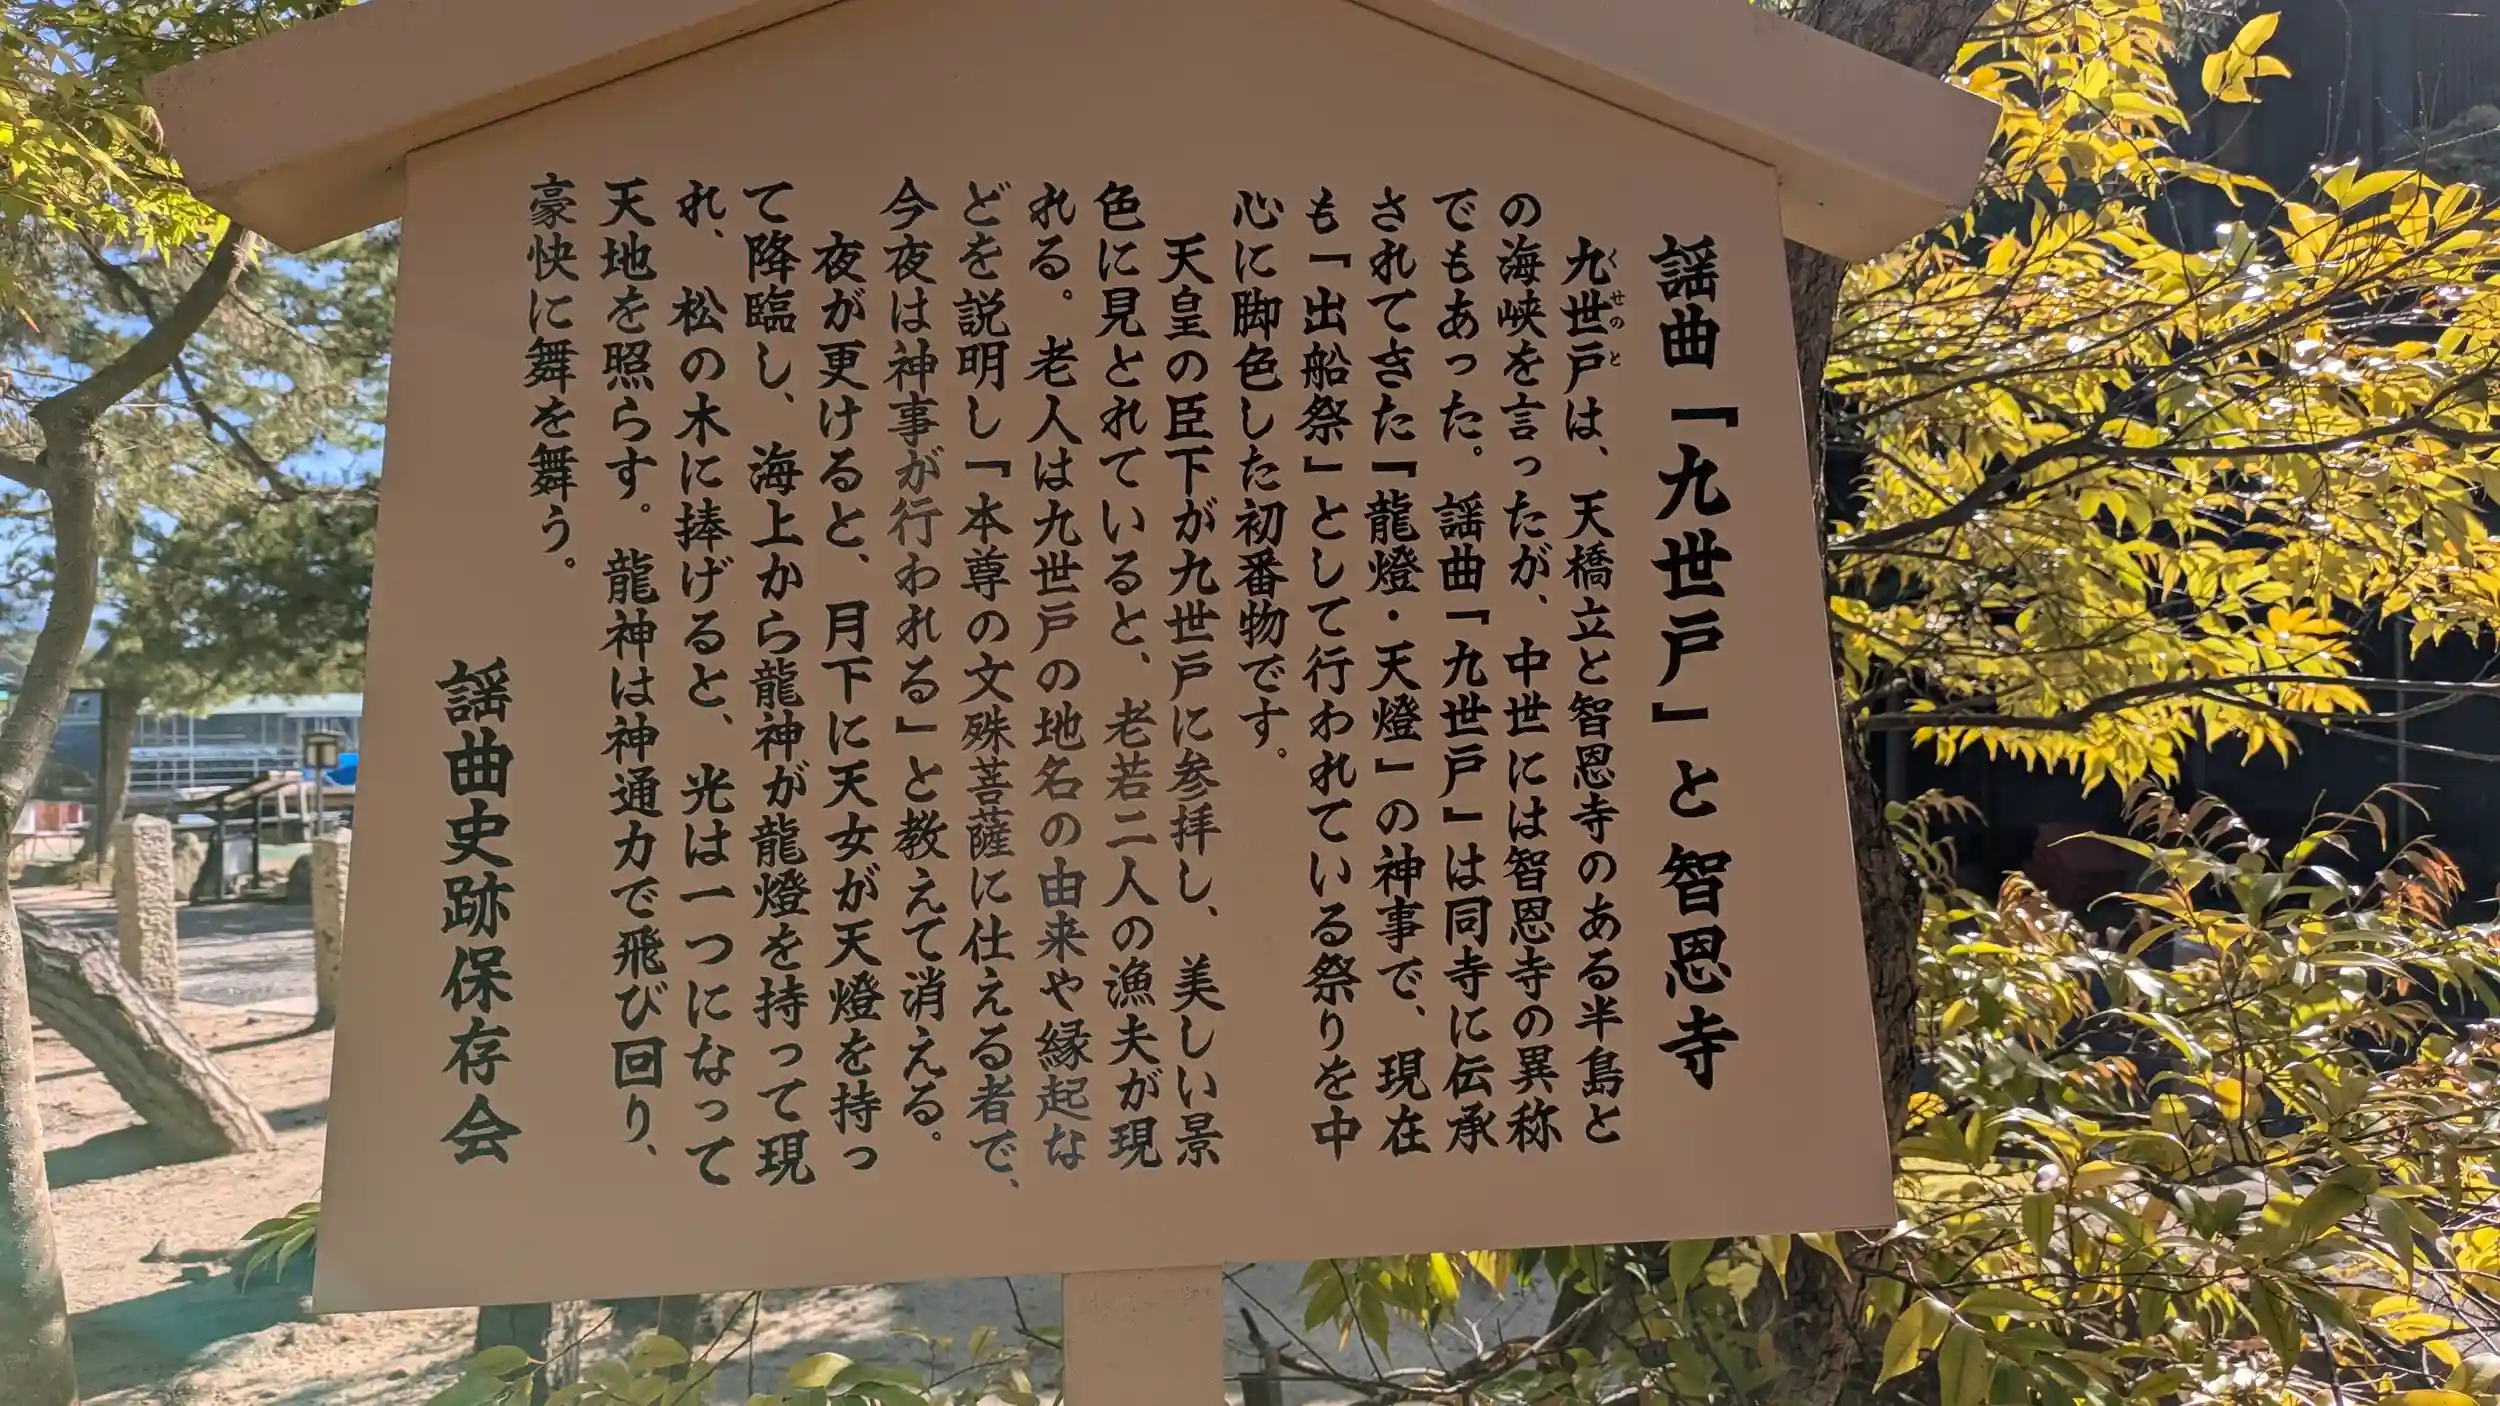 謡曲「九世戸」と智恩寺
九世戸は、天橋立と智恩寺のある半島と
くせのと
の海峡を言ったが、中世には智恩寺の異称
でもあった。謡曲「九世戸」は同寺に伝承
されてきた「龍燈・天燈」の神事で、現在
も「出船祭」として行われている祭りを中
心に脚色した初番物です。
天皇の臣下が九世戸に参拝し、美しい景
色に見とれていると、老若二人の漁夫が現
れる。老人は九世戸の地名の由来や縁起な
どを説明し「本尊の文殊菩薩に仕える者で、
今夜は神事が行われる」と教えて消える。
夜が更けると、月下に天女が天燈を持っ
て降臨し、海上から龍神が龍燈を持って現
れ、松の木に捧げると、光は一つになって
天地を照らす。龍神は神通力で飛び回り、
豪快に舞を舞う。
謡曲史跡保存会